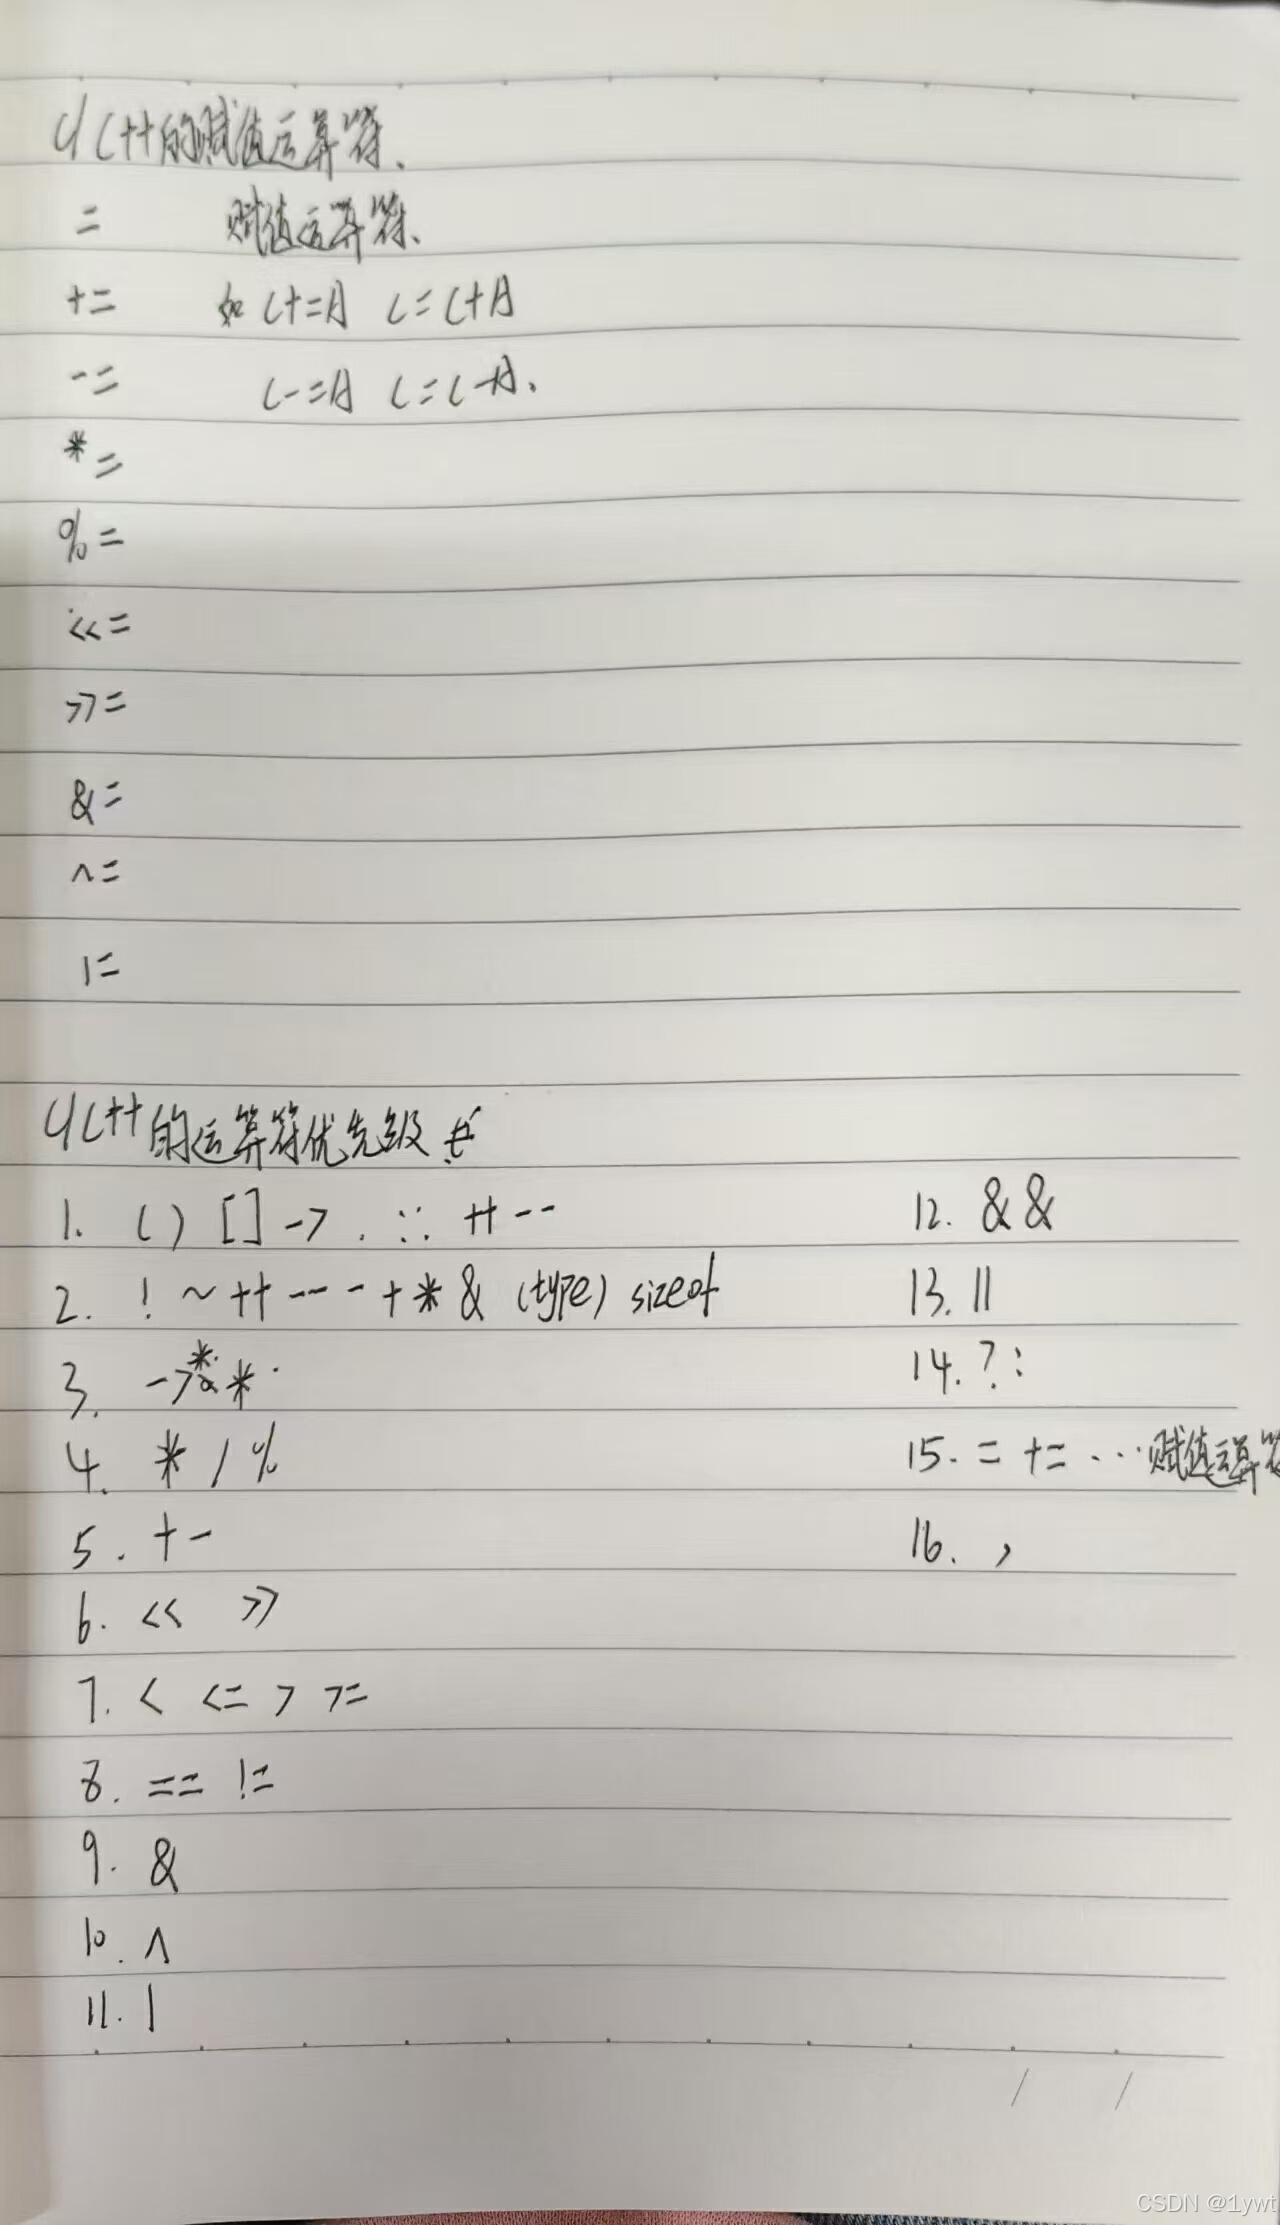 C++的赋值运算符、
= 赋值运算符、
+= 如 C+=A C=C+A
-= C-=A C=C-A、
*=
%=
<<=
>>=
&=
^=
|=
C++的运算符优先级
1. () [] -> . :: ++ --
2. ! ~ ++ -- - + * & (type) sizeof
3. ->* *.
4. * / %
5. + -
6. << >>
7. < <= > >=
8. == !=
9. &
10. ^
11. |
12. &&
13. ||
14. ? :
15. = += ... 赋值运算符
16. ,
/ /
CSDN @1ywt